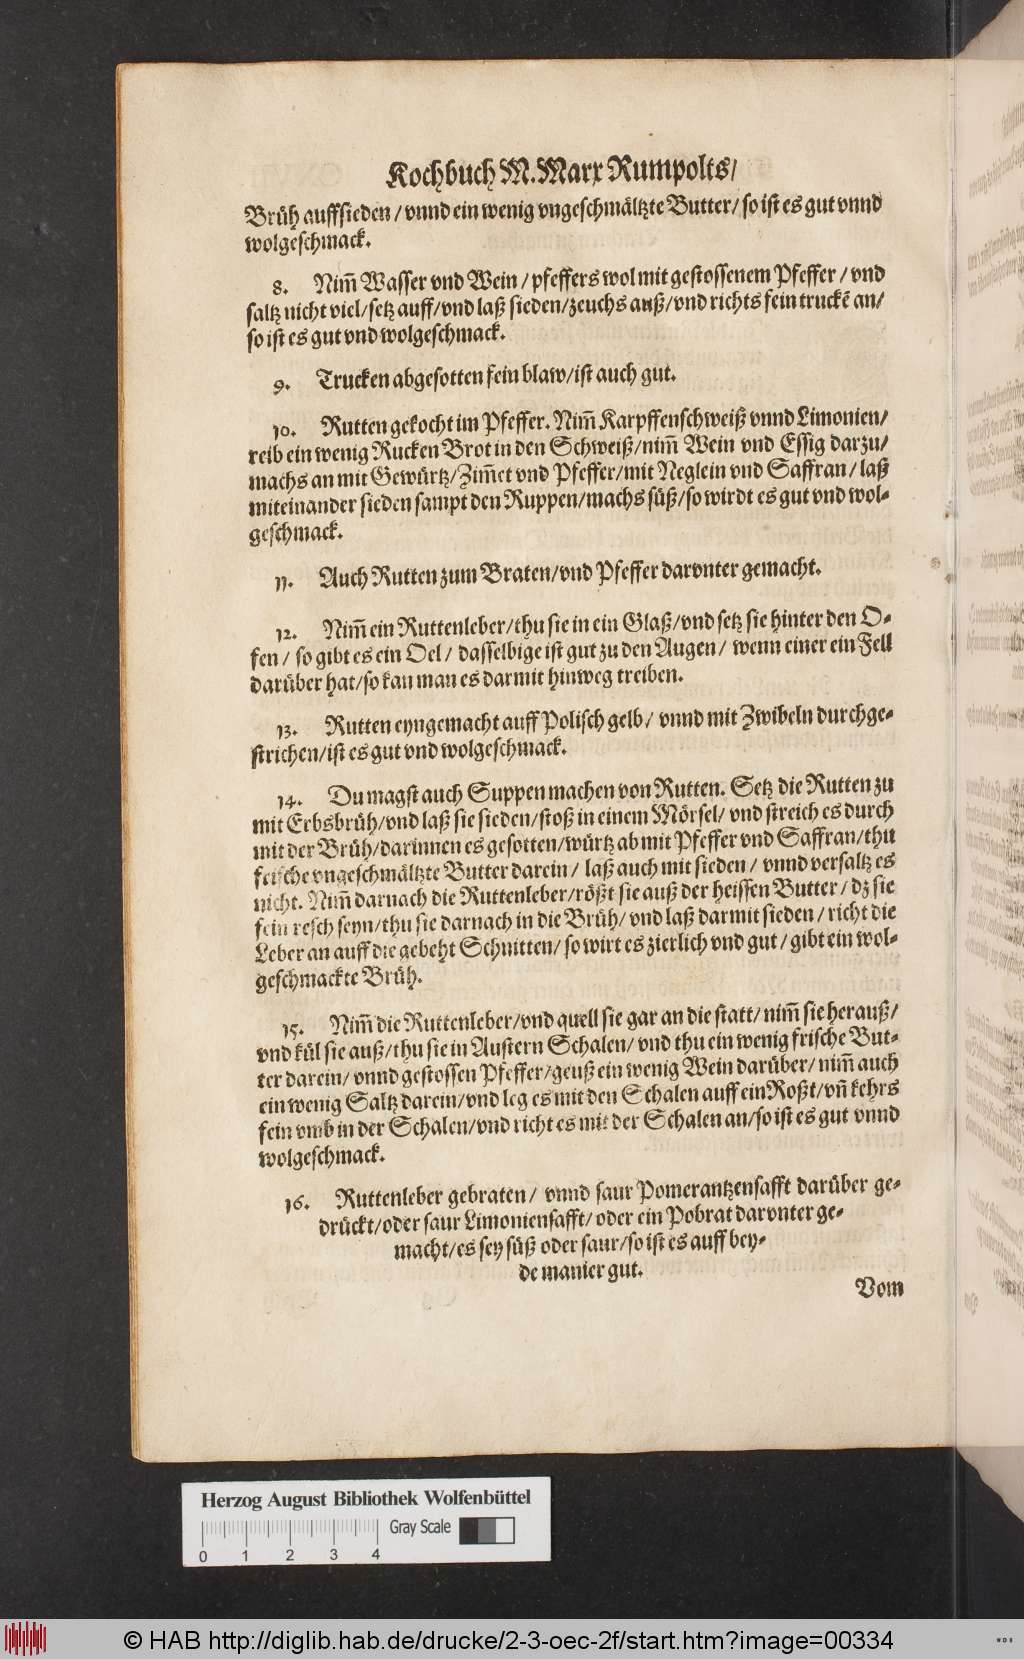 Kochbuch M. Marx Rumpolts/
Brüh auffsieden / vnnd ein wenig vngeschmältzte Butter/ so ist es gut vnnd
wolgeschmack.
8. Nim̃ Wasser vnd Wein / pfeffers wol mit gestossenem Pfeffer / vnd
saltz nicht viel/setz auff/vnd laß sieden/zeuchs auß/vnd richts fein truckẽ an/
so ist es gut vnd wolgeschmack.
9. Trucken abgesotten fein blaw/ist auch gut.
10. Rutten gekocht im Pfeffer. Nim̃ Karpffenschweiß vnnd Limonien/
reib ein wenig Rucken Brot in den Schweiß/nim̃ Wein vnd Essig darzu/
machs an mit Gewürtz/Zim̃et vnd Pfeffer/mit Neglein vnd Saffran/ laß
miteinander sieden sampt den Ruppen/machs süß/so wirdt es gut vnd wol-
geschmack.
11. Auch Rutten zum Braten/vnd Pfeffer darvnter gemacht.
12. Nim̃ ein Ruttenleber/thu sie in ein Glaß/vnd setz sie hinter den O-
fen / so gibt es ein Oel / dasselbige ist gut zu den Augen / wenn einer ein Fell
darüber hat/so kan man es darmit hinweg treiben.
13. Rutten eyngemacht auff Polisch gelb/ vnnd mit Zwibeln durchge-
strichen/ist es gut vnd wolgeschmack.
14. Du magst auch Suppen machen von Rutten. Setz die Rutten zu
mit Erbsbrüh/vnd laß sie sieden/stoß in einem Mörsel/ vnd streich es durch
mit der Brüh/darinnen es gesotten/würtz ab mit Pfeffer vnd Saffran/thu
frische vngeschmältzte Butter darein / laß auch mit sieden / vnnd versaltz es
nicht. Nim̃ darnach die Ruttenleber/rößt sie auß der heissen Butter / dz sie
fein resch seyn/thu sie darnach in die Brüh/ vnd laß darmit sieden / richt die
Leber an auff die gebeht Schnitten/ so wirt es zierlich vnd gut / gibt ein wol-
geschmackte Brüh.
15. Nim̃ die Ruttenleber/vnd quell sie gar an die statt/ nim̃ sie herauß/
vnd kül sie auß/thu sie in Austern Schalen/ vnd thu ein wenig frische But-
ter darein/ vnnd gestossen Pfeffer/geuß ein wenig Wein darüber/ nim̃ auch
ein wenig Saltz darein/vnd leg es mit den Schalen auff ein Roßt/vñ kehrs
fein vmb in der Schalen/vnd richt es mit der Schalen an/so ist es gut vnnd
wolgeschmack.
16. Ruttenleber gebraten/ vnnd saur Pomerantzensafft darüber ge-
drückt/oder saur Limoniensafft/ oder ein Pobrat darvnter ge-
macht/es sey süß oder saur/so ist es auff bey-
de manier gut.
Vom
Herzog August Bibliothek Wolfenbüttel
Gray Scale
0 1 2 3 4
© HAB http://diglib.hab.de/drucke/2-3-oec-2f/start.htm?image=00334